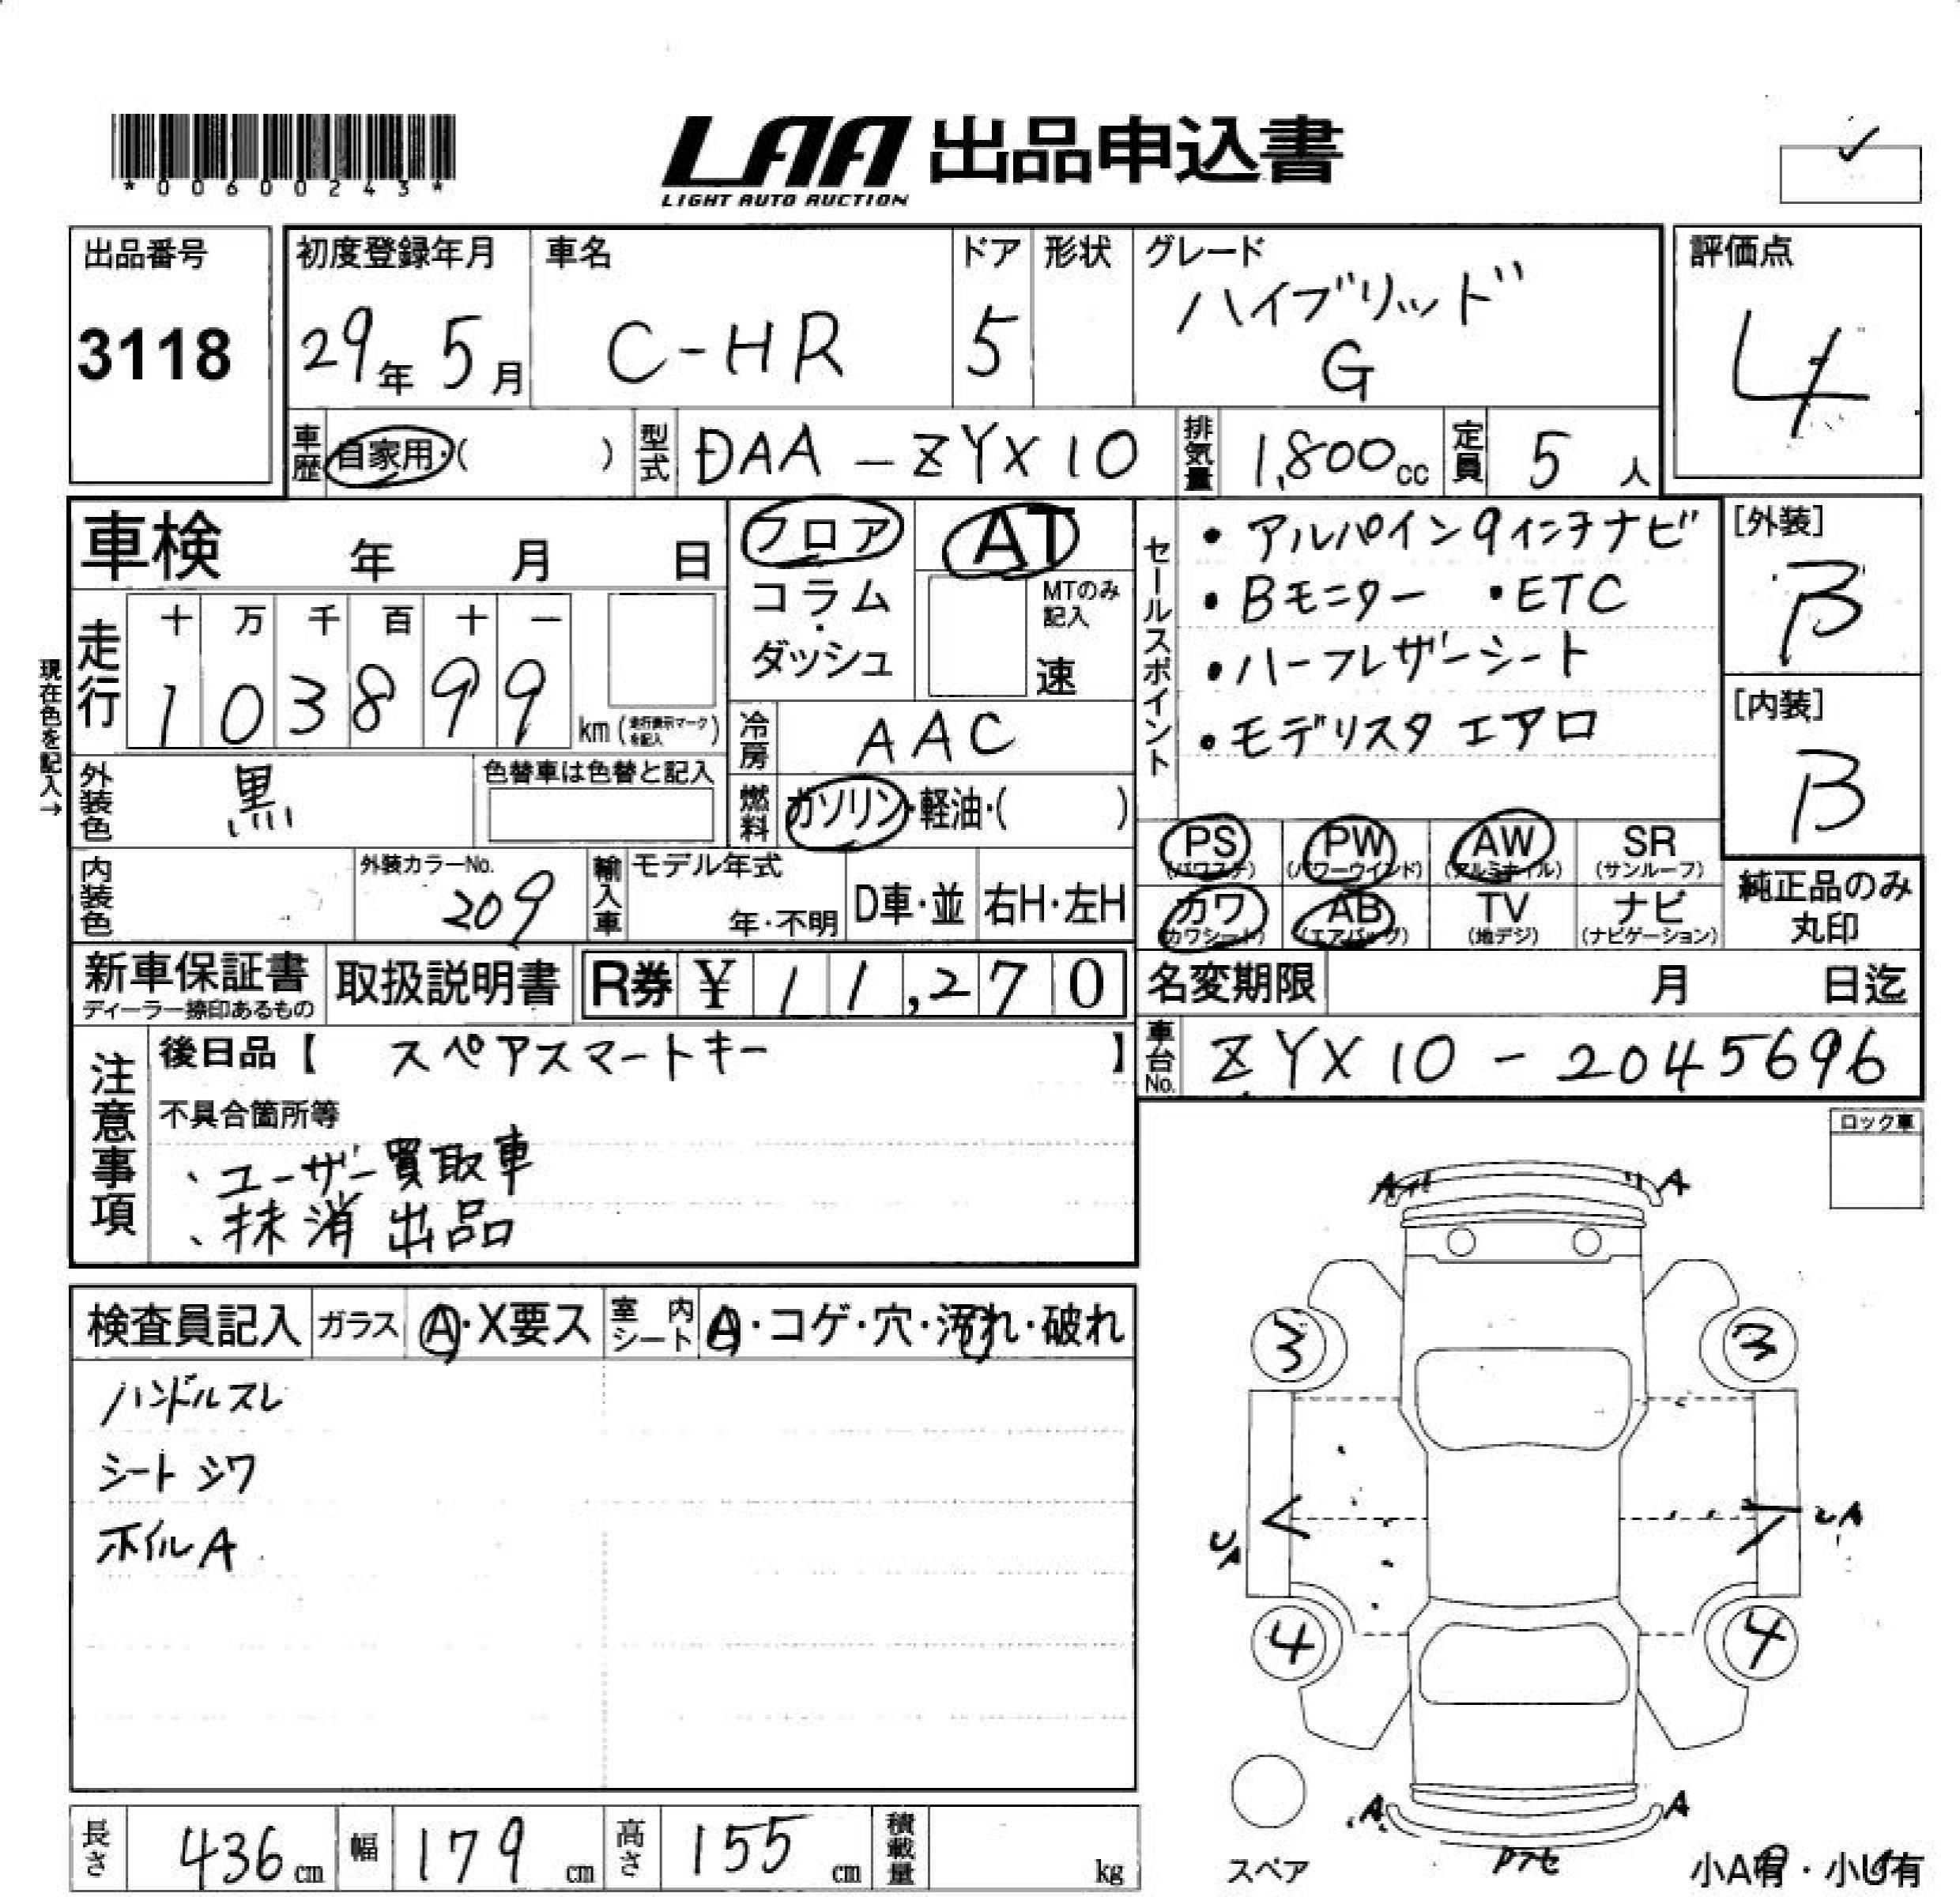 *00600243*
LAA 出品申込書
LIGHT AUTO AUCTION
出品番号
3118
初度登録年月
29年 5月
車名
C-HR
ドア
5
形状
グレード
ハイブリッド
G
評価点
4
車歴 自家用・( )
型式 DAA-ZYX10
排気量 1,800cc
定員 5人
車検 年 月 日
フロア
コラム
・
ダッシュ
AT
MTのみ
記入
速
セールスポイント
・アルパイン9インチナビ
・Bモニター ・ETC
・ハーフレザーシート
・モデリスタエアロ
[外装]
B
[内装]
B
現在色を記入→
走行
十 万 千 百 十 一
1 0 3 8 9 9
km (走行表示マークを記入)
冷房 AAC
外装色 黒
色替車は色替と記入
燃料 ガソリン・軽油・( )
PS (パワステ)
PW (パワーウインド)
AW (アルミホイル)
SR (サンルーフ)
カワ (カワシート)
AB (エアバッグ)
TV (地デジ)
ナビ (ナビゲーション)
純正品のみ
丸印
内装色
外装カラーNo.
209
輸入車
モデル年式
年・不明
D車・並
右H・左H
新車保証書
ディーラー捺印あるもの
取扱説明書
R券 ¥ 11,270
名変期限 月 日迄
車台No. ZYX10-2045696
注意事項
後日品【 スペアスマートキー 】
不具合箇所等
、ユーザー買取車
、抹消出品
ロック車
検査員記入
ガラス
A・X要ス
室内シート
A・コゲ・穴・汚れ・破れ
ハンドルスレ
シートシワ
ホイルA
A
A
3
3
UA
UA
4
4
A
A
スペア
小A有・小U有
長さ 436cm
幅 179cm
高さ 155cm
積載量 kg